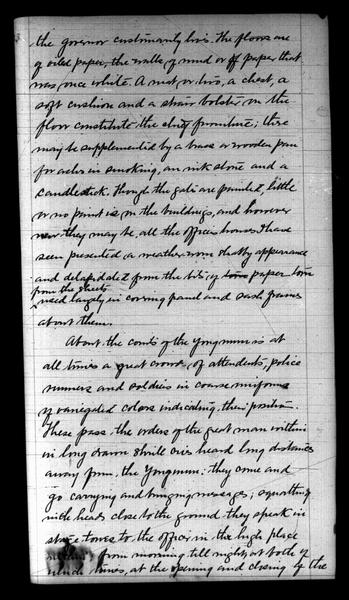 the governor customarily lives. The floors are
of oiled paper, the walls of mud or off paper that
was once white. A mat or two, a chest, a
soft cushion and a straw bolster on the
floor constitute the chief furniture; these
may be supplemented by a brass or wooden pan
for ashes in smoking, an ink stone and a
candlestick. Though the gates are painted, little
or no paint is on the buildings, and however
new they may be, all the officers houses I have
seen presented a weatherworn shabby appearance
and delapidated from the bits of paper torn
from the sheets
used largely in covering panel and sash frames
about them.
About the courts of the Yongmun is at
all times a great crowd, of attendents, police
runners and soldiers in coarse uniforms
of variegated colors indicating their position.
These pass the orders of the great man within
in long drawn shrill cries heard long distances
away from the Yongmun; they come and
go carrying and bringing messages; squatting
with heads close to the ground they speak in
stage tones to the officer in the high place
from morning till night, at both of
which times, at the opening and closing of the